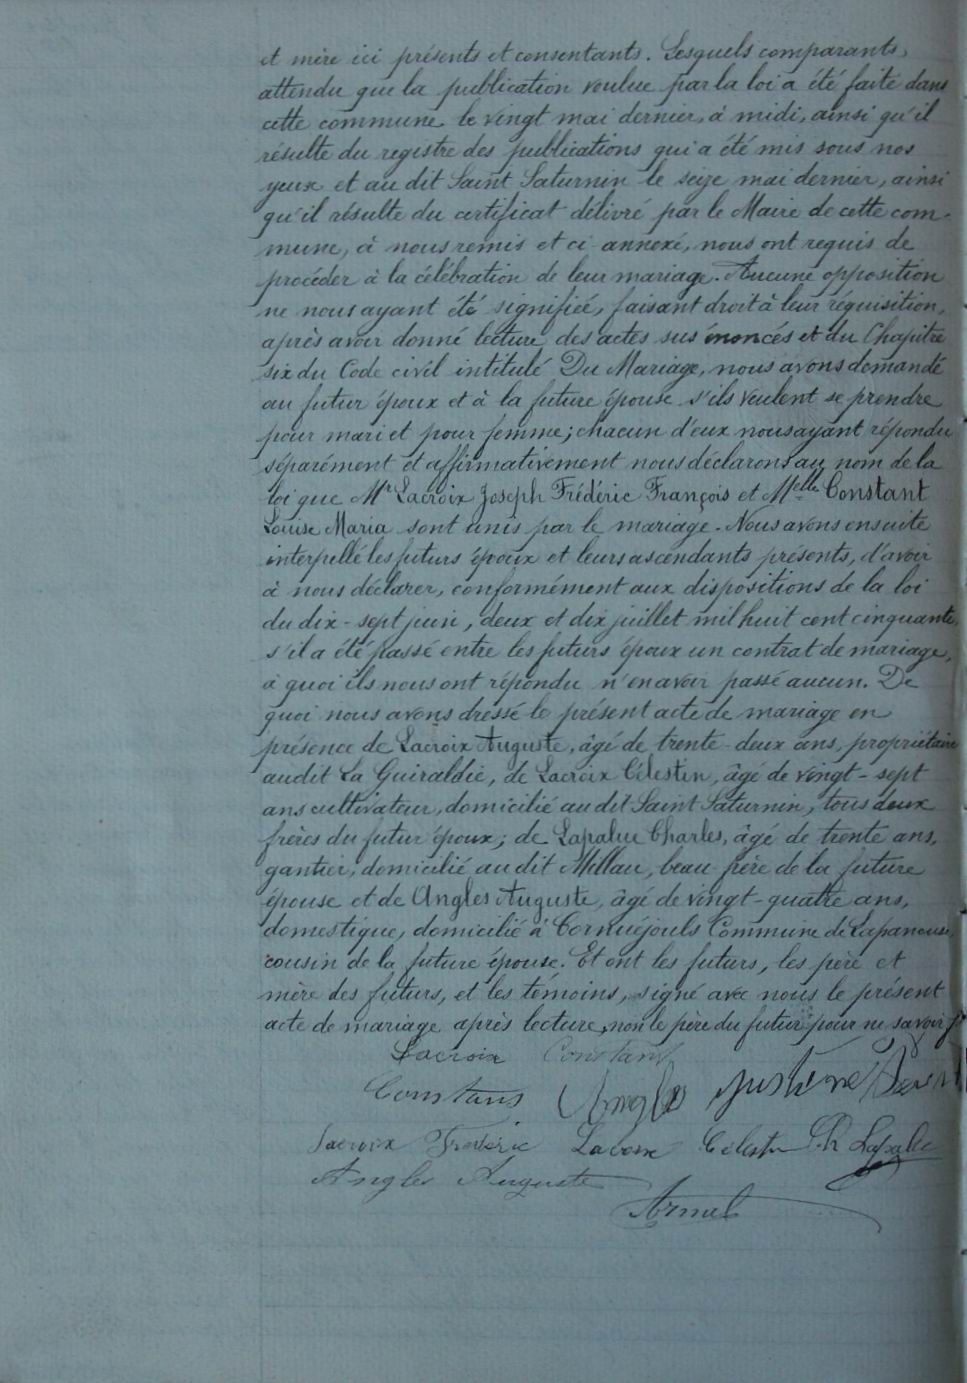 et mère ici présents et consentants. Lesquels comparants,
attendu que la publication voulue par la loi a été faite dans
cette commune le vingt mai dernier, à midi, ainsi qu'il
résulte du registre des publications qui a été mis sous nos
yeux et au dit Saint Saturnin le seize mai dernier, ainsi
qu'il résulte du certificat délivré par le Maire de cette com-
mune, à nous remis et ci annexé, nous ont requis de
procéder à la célébration de leur mariage. Aucune opposition
ne nous ayant été signifiée, faisant droit à leur réquisition,
après avoir donné lecture des actes sus énoncés et du Chapitre
six du Code civil intitulé Du Mariage, nous avons demandé
au futur époux et à la future épouse s'ils veulent se prendre
pour mari et pour femme; chacun d'eux nous ayant répondu
séparément et affirmativement nous déclarons au nom de la
loi que Mr Lacroix Joseph Frédéric François et Melle Constant
Louise Maria sont unis par le mariage. Nous avons ensuite
interpellé les futurs époux et leurs ascendants présents, d'avoir
à nous déclarer, conformément aux dispositions de la loi
du dix-sept juin, deux et dix juillet mil huit cent cinquante,
s'il a été passé entre les futurs époux un contrat de mariage,
à quoi ils nous ont répondu n'en avoir passé aucun. De
quoi nous avons dressé le présent acte de mariage en
présence de Lacroix Auguste, âgé de trente-deux ans, propriétaire
audit La Guiraldie, de Lacroix Célestin, âgé de vingt-sept
ans cultivateur, domicilié au dit Saint Saturnin, tous deux
frères du futur époux; de Lapalue Charles, âgé de trente ans,
gantier, domicilié au dit Millau, beau père de la future
épouse et de Angles Auguste, âgé de vingt-quatre ans,
domestique, domicilié à Cornuéjouls Commune de Lapanouse,
cousin de la future épouse. Et ont les futurs, les père et
mère des futurs, et les témoins, signé avec nous le présent
acte de mariage après lecture, non le père du futur pour ne savoir
Lacroix Constant
Constans Angles Justine
Lacroix Frédéric Lacroix Célestin Ch Lapalue
Angles Auguste
Arnal